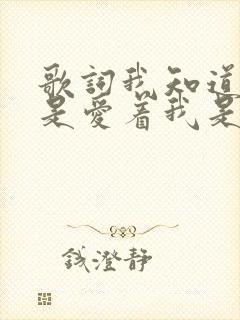 歌詞我知道
是愛着我是
錢澄靜